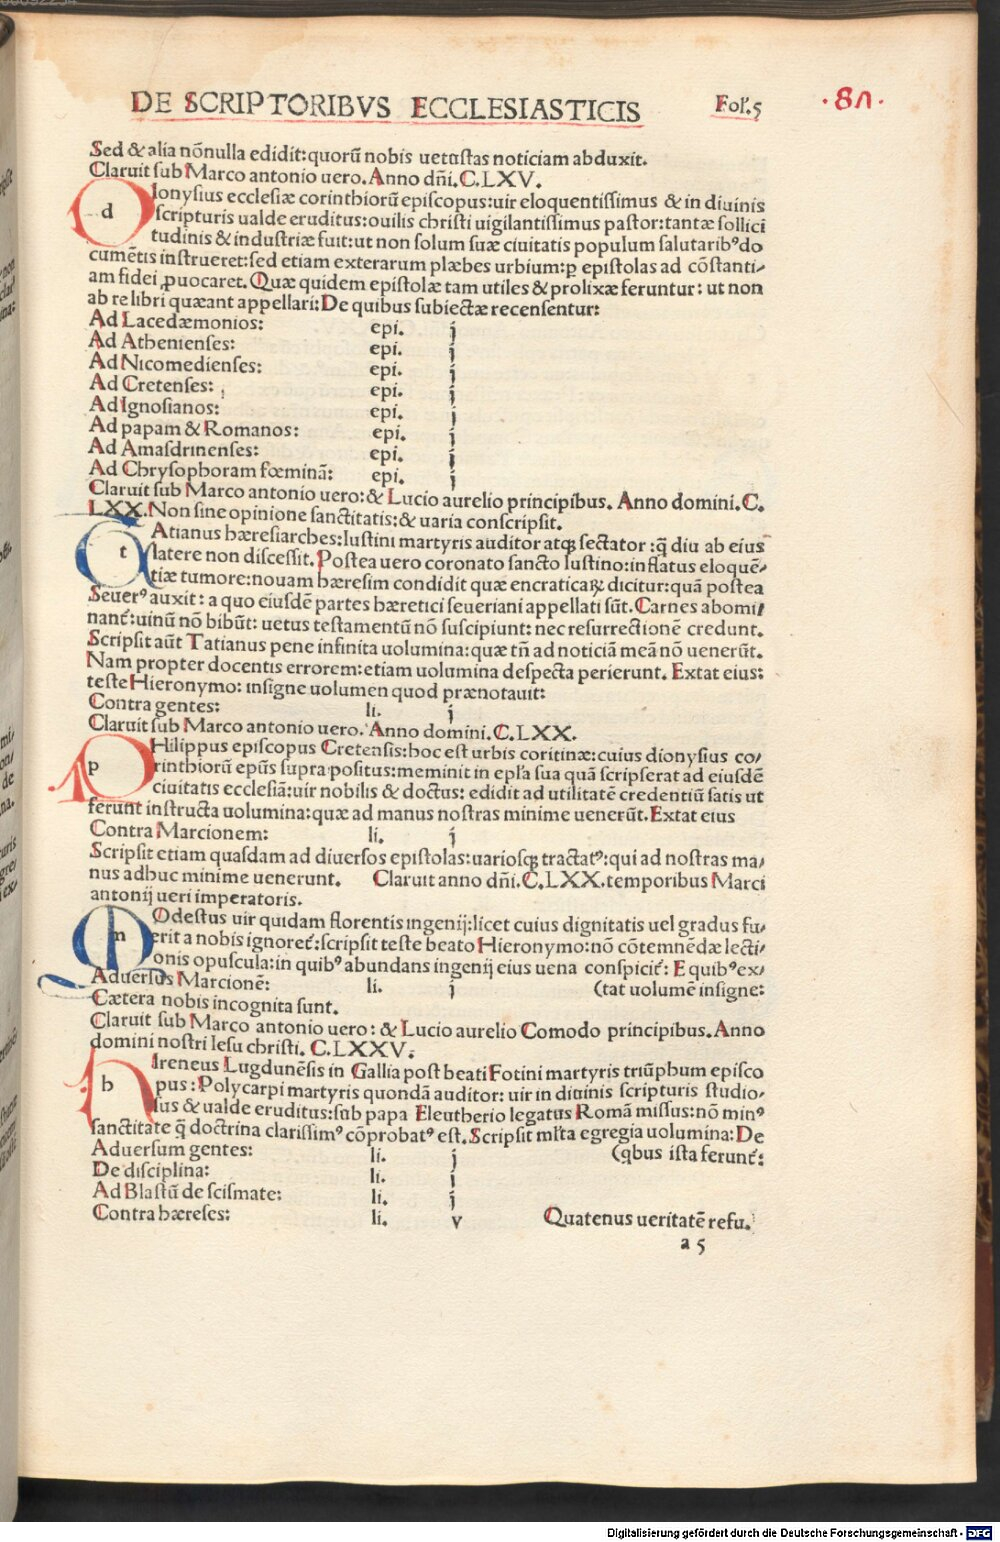 DE SCRIPTORIBVS ECCLESIASTICIS Fol'.5
Sed & alia nõnulla edidit:quorũ nobis uetustas noticiam abduxit.
Claruit sub Marco antonio uero. Anno dñi. C.LXV.
d Ionysius ecclesiæ corinthiorũ episcopus:uir eloquentissimus & in diuinis
scripturis ualde eruditus:ouilis christi uigilantissimus pastor:tantæ sollici
tudinis & industriæ fuit:ut non solum suæ ciuitatis populum salutaribꝰ do
cumẽtis instrueret:sed etiam exterarum plæbes urbium:ꝑ epistolas ad cõstanti/
am fidei ꝓuocaret. Quæ quidem epistolæ tam utiles & prolixæ feruntur: ut non
ab re libri quæant appellari: De quibus subiectæ recensentur:
Ad Lacedæmonios: epi. j
Ad Athenienses: epi. j
Ad Nicomedienses: epi. j
Ad Cretenses: epi. j
Ad Ignosianos: epi. j
Ad papam & Romanos: epi. j
Ad Amasdrinenses: epi. j
Ad Chrysophoram fœminã: epi. j
Claruit sub Marco antonio uero:& Lucio aurelio principibus. Anno domini. C.
LXX. Non sine opinione sanctitatis:& uaria conscripsit.
t Atianus hæresiarches: Iustini martyris auditor atqꝫ sectator :q̃ diu ab eius
latere non discessit. Postea uero coronato sancto Iustino:inflatus eloquẽ/
tiæ tumore:nouam hæresim condidit quæ encraticaꝝ dicitur:quã postea
Seuerꝰ auxit: a quo eiusdẽ partes hæretici seueriani appellati sũt. Carnes abomi/
nant᷑:uinũ nõ bibũt: uetus testamentũ nõ suscipiunt: nec resurrectionẽ credunt.
Scripsit aũt Tatianus pene infinita uolumina:quæ tñ ad noticiã meã nõ uenerũt.
Nam propter docentis errorem:etiam uolumina despecta perierunt. Extat eius:
teste Hieronymo: insigne uolumen quod prænotauit:
Contra gentes: li. j
Claruit sub Marco antonio uero. Anno domini. C.LXX.
p Hilippus episcopus Cretensis:hoc est urbis coritinæ:cuius dionysius co/
rinthiorũ ep̃us supra positus:meminit in epl'a sua quã scripserat ad eiusdẽ
ciuitatis ecclesiã:uir nobilis & doctus: edidit ad utilitatẽ credentiũ satis ut
ferunt instructa uolumina:quæ ad manus nostras minime uenerũt. Extat eius
Contra Marcionem: li. j
Scripsit etiam quasdam ad diuersos epistolas:uariosqꝫ tractatꝰ:qui ad nostras ma/
nus adhuc minime uenerunt. Claruit anno dñi. C.LXX. temporibus Marci
antonij ueri imperatoris.
m Odestus uir quidam florentis ingenij:licet cuius dignitatis uel gradus fu/
erit a nobis ignoret᷑:scripsit teste beato Hieronymo: nõ cõtemnẽdæ lecti/
onis opuscula:in quibꝰ abundans ingenij eius uena conspicit᷑: E quibꝰ ex/
Aduersus Marcionẽ: li. j (tat uolumẽ insigne:
Cætera nobis incognita sunt.
Claruit sub Marco antonio uero: & Lucio aurelio Comodo principibus. Anno
domini nostri Iesu christi. C.LXXV.
h Ireneus Lugdunẽsis in Gallia post beati Fotini martyris triũphum episco
pus: Polycarpi martyris quondã auditor: uir in diuinis scripturis studio/
sus & ualde eruditus:sub papa Eleutherio legatus Romã missus:nõ minꝰ
sanctitate q̃ doctrina clarissimꝰ cõprobatꝰ est. Scripsit ml'ta egregia uolumina: De
Aduersum gentes: li. j (qbus ista ferunt᷑:
De disciplina: li. j
Ad Blastũ de scismate: li. j
Contra hæreses: li. v Quatenus ueritatẽ refu.
a 5
Digitalisierung gefördert durch die Deutsche Forschungsgemeinschaft - DFG